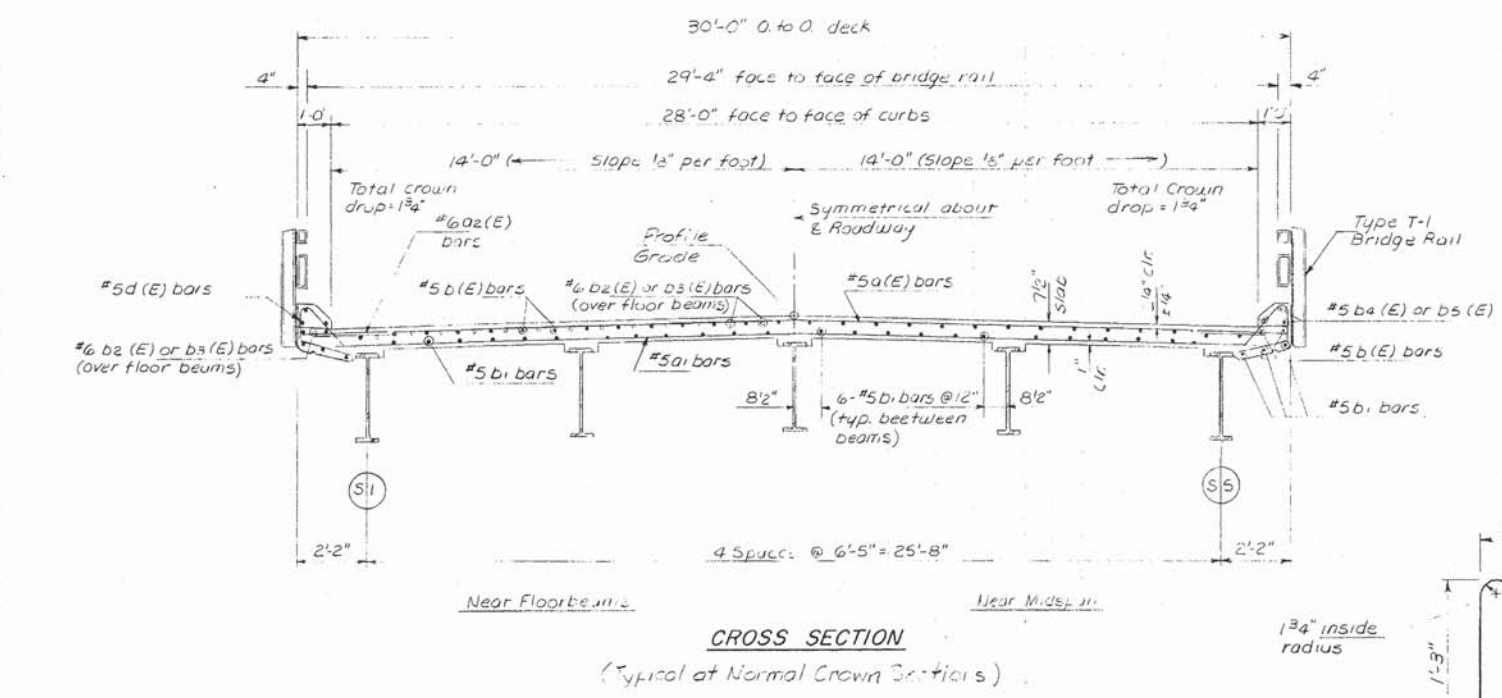 30'-0" O. to O. deck
4"
29'-4" face to face of bridge rail
4"
1'-0"
28'-0" face to face of curbs
14'-0" (← Slope 1/8" per foot)
14'-0" (Slope 1/8" per foot →)
Total crown
drop = 1 3/4"
#6 a2(E)
bars
Symmetrical about
℄ Roadway
Total Crown
drop = 1 3/4"
Type T-1
Bridge Rail
Profile
Grade
#5d (E) bars
#5 b(E) bars
#6 b2(E) or b3(E) bars
(over floor beams)
#5a(E) bars
7 1/2"
Slab
clr.
± 1/4"
#5 b4 (E) or b5 (E)
#6 b2 (E) or b3 (E) bars
(over floor beams)
#5 b1 bars
#5a1 bars
8 1/2"
6-#5 b1 bars @ 12"
(typ. beetween
beams)
8 1/2"
1"
Clr.
#5 b(E) bars
#5 b1 bars
S1
S5
2'-2"
4 Spaces @ 6'-5" = 25'-8"
2'-2"
Near Floorbeams
Near Midspan
CROSS SECTION
(Typical at Normal Crown Sections)
1 3/4" inside
radius
1'-3"